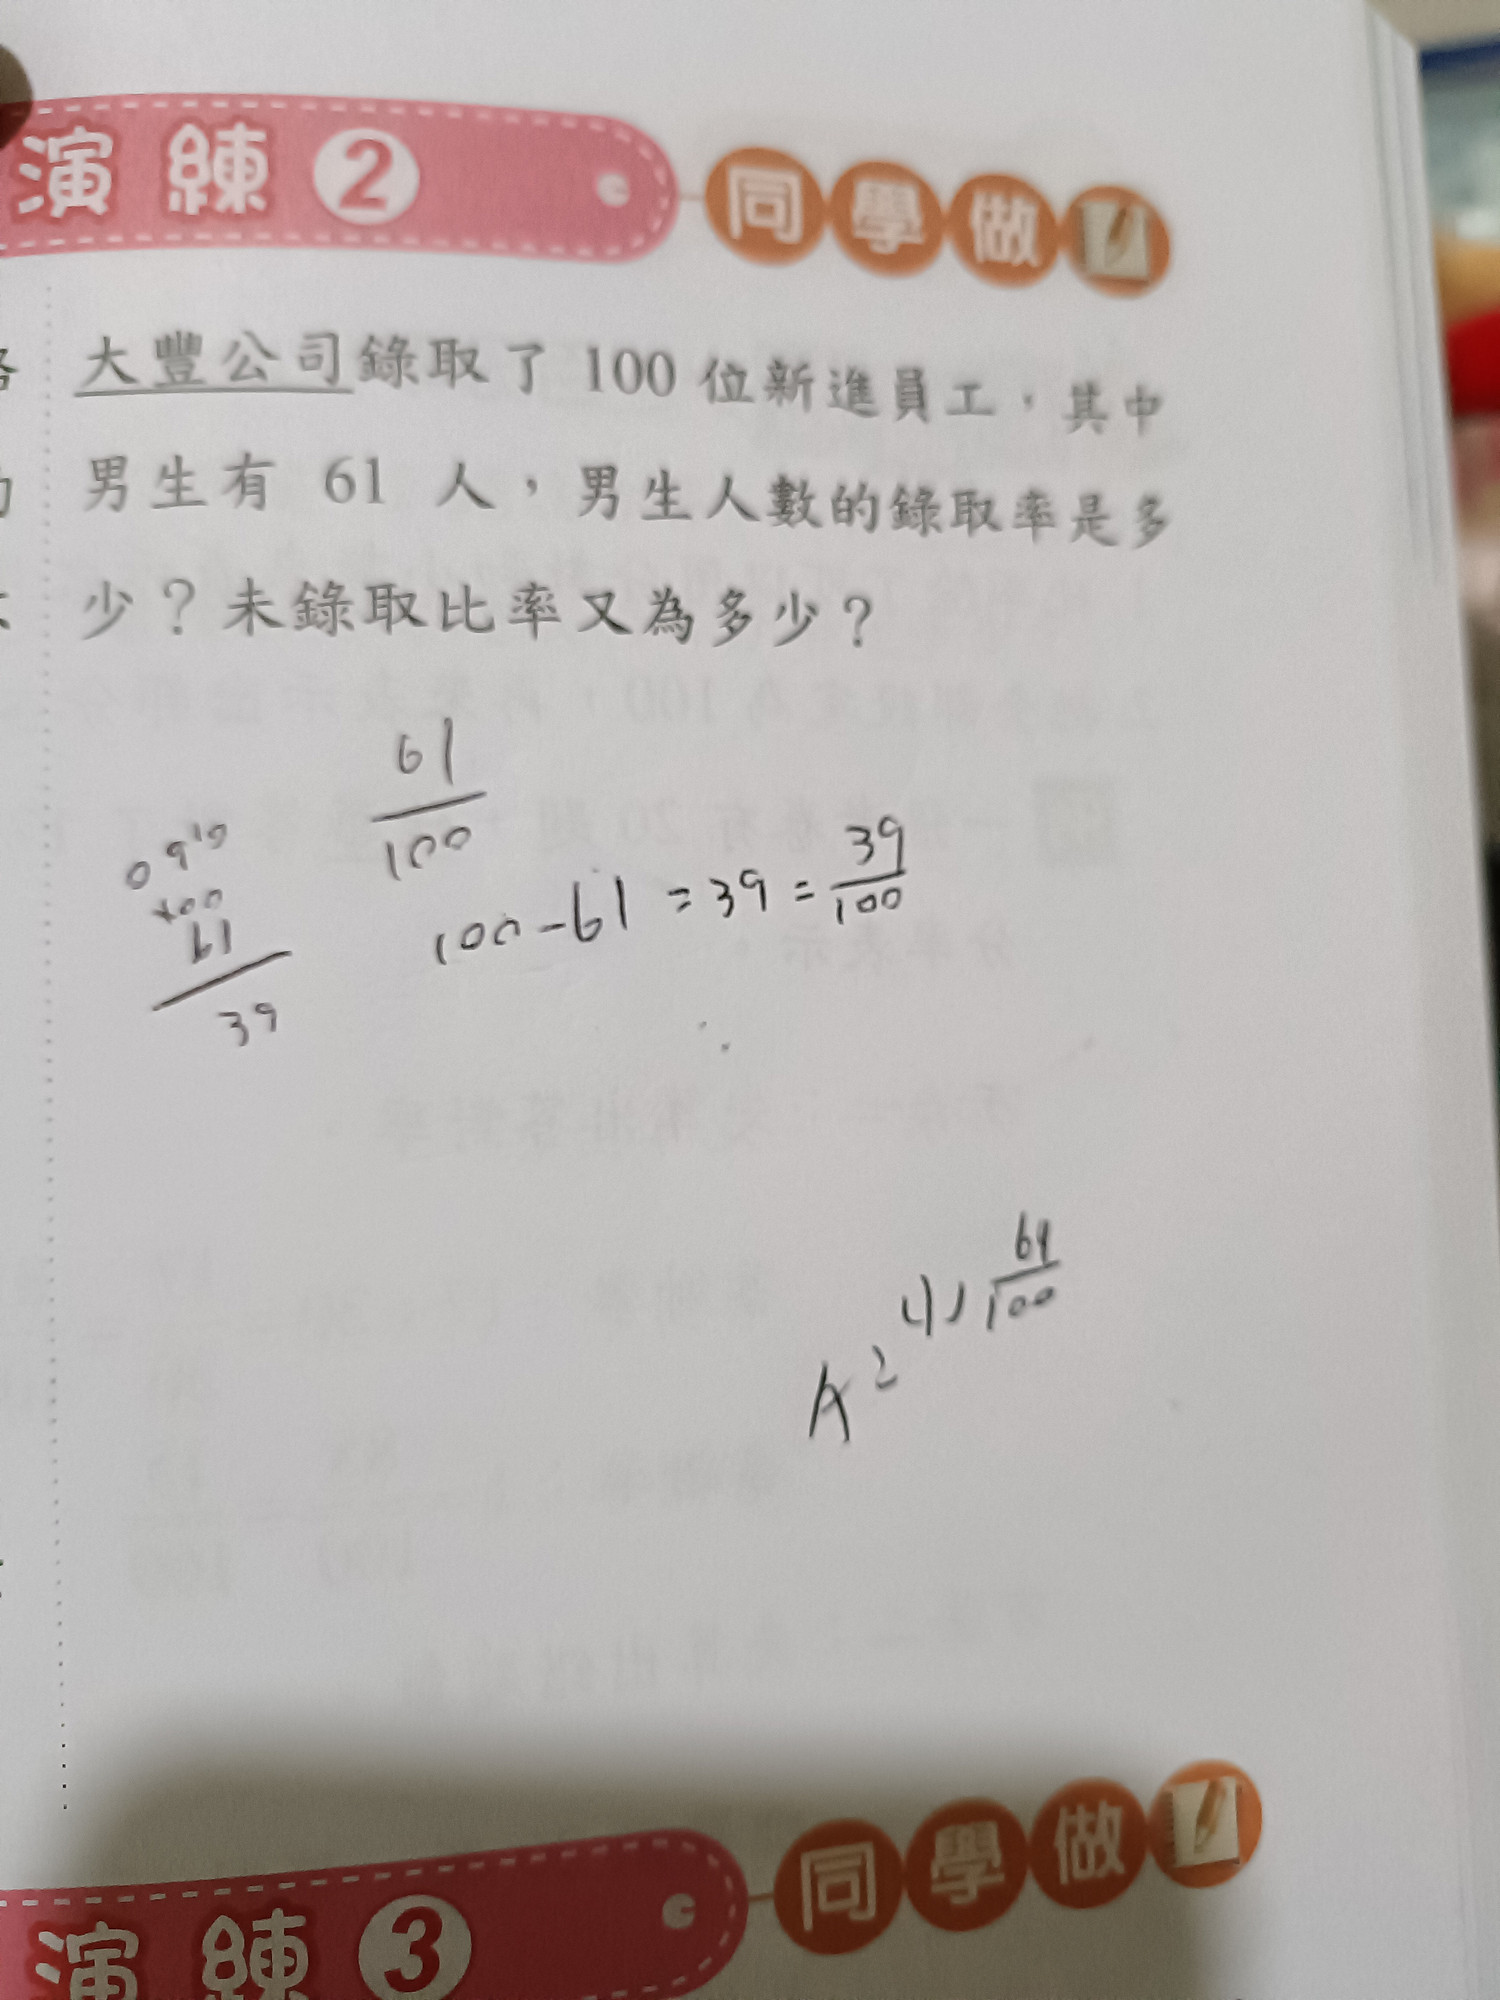 演練2 同學做
大豐公司錄取了 100 位新進員工，其中
男生有 61 人，男生人數的錄取率是多
少？未錄取比率又為多少？
61
100
0 9 10
100
61
39
100-61=39=39
100
(1) 61
100
A:
演練3 同學做